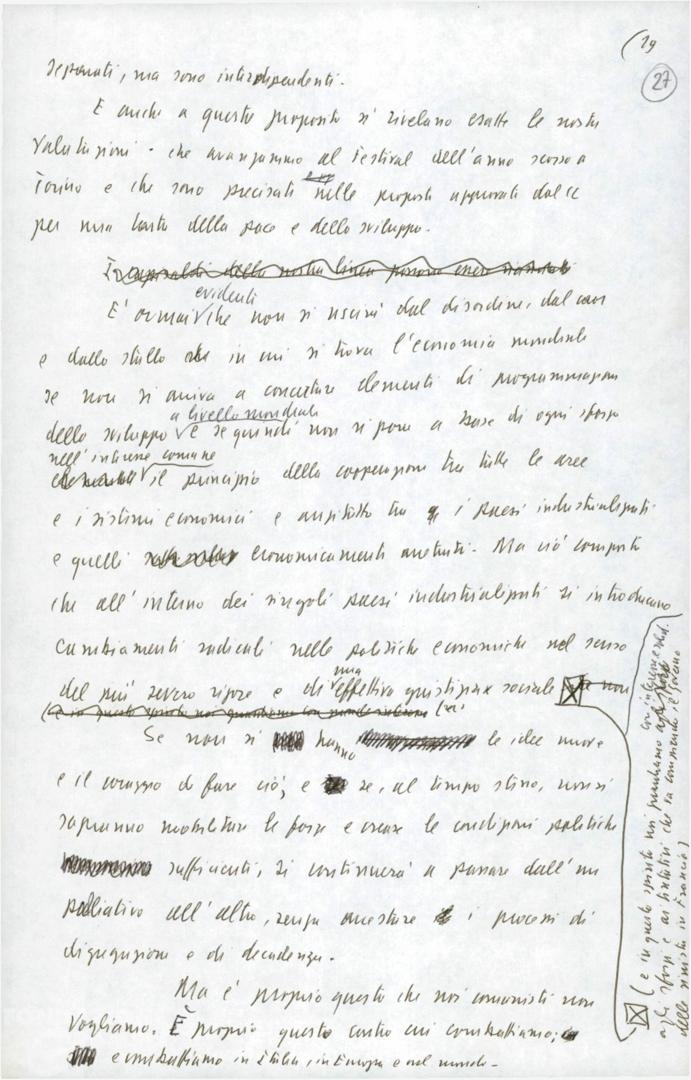 (29
27
separati, ma sono interdipendenti.
E anche a questo proposito si rivelano esatte le nostre
valutazioni - che avanzammo al Festival dell'anno scorso a
Torino e che sono precisati nelle proposte approvate dal CC
per una carta della pace e dello sviluppo.
I capisaldi della nostra linea possono essere
evidente
E' ormai che non si uscirà dal disordine, dal caos
e dallo stallo in cui si trova l'economia mondiale
se non si arriva a concertare elementi di programmazione
a livello mondiale
dello sviluppo e se quindi non si pone a base di ogni sforzo
nell'interesse comune
il principio della cooperazione tra tutte le aree
e i sistemi economici e anzitutto tra i paesi industrializzati
e quelli economicamente arretrati. Ma ciò comporta
che all'interno dei singoli paesi industrializzati si introducano
cambiamenti radicali nelle politiche economiche nel senso
una
del più severo rigore e di effettiva giustizia sociale
(e in questo spirito noi guardiamo con
Se non si hanno le idee nuove
e il coraggio di fare ciò, e se, al tempo stesso, non si
sapranno mobilitare le forze e creare le condizioni politiche
sufficienti, si continuerà a passare dall'un
palliativo all'altro, senza arrestare i processi di
disgregazione e di decadenza.
Ma è proprio questo che noi comunisti non
vogliamo. È proprio questo contro cui combattiamo;
e combattiamo in Italia, in Europa e nel mondo.
(e in questo spirito noi guardiamo con interesse
agli sforzi e ai tentativi che sta compiendo il governo
della sinistra in Francia)